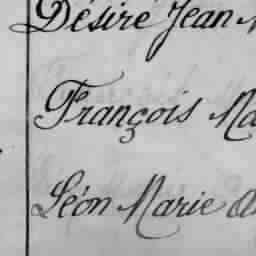 Désiré Jean
François Ma
Léon Marie